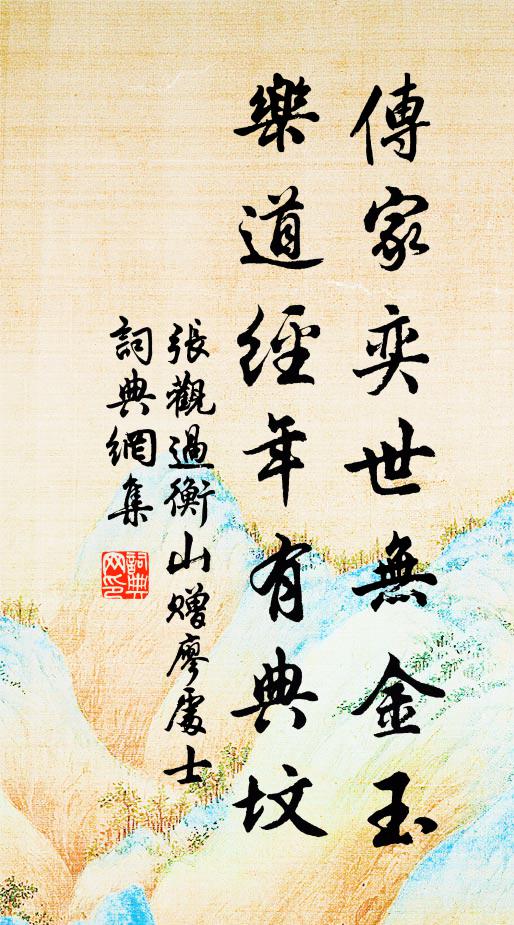 傳家奕世無金玉
樂道經年有典墳
張觀過衡山贈廖處士
詞典網集
詞典
网印